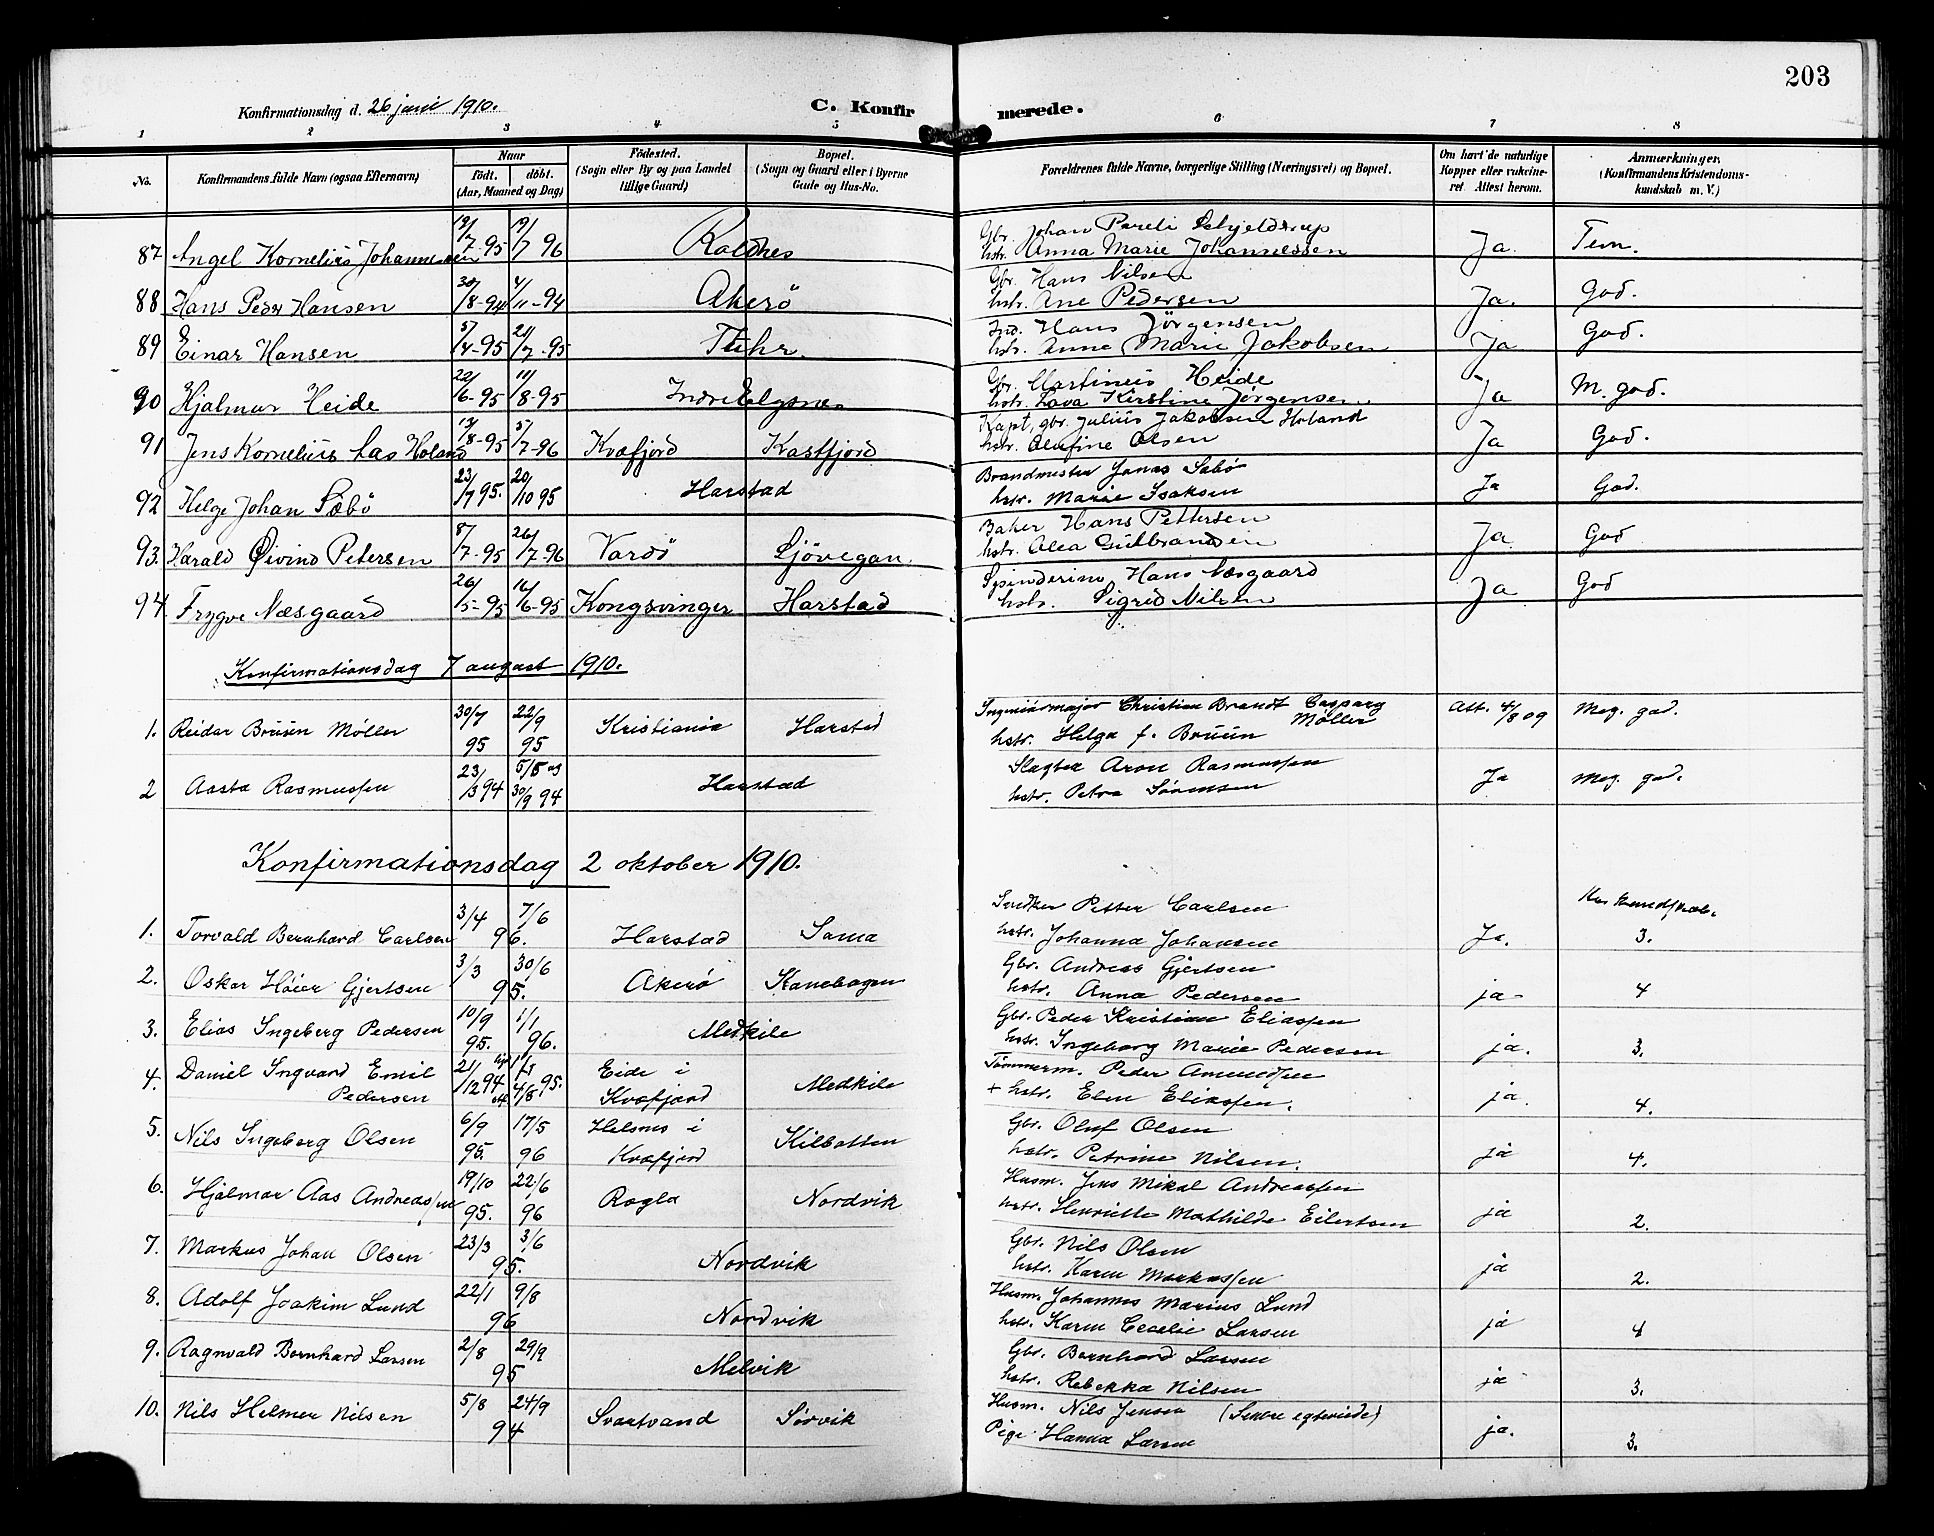 203
Konfirmationsdag d. 26 juni 1910. C. Konfirmerede.
1 2 3 4 5 6 7 8
No. Konfirmandens fulde Navn (ogsaa Efternavn) Naar født. døbt. (Aar, Maaned og Dag) Fødested. (Sogn eller By og paa Landet tillige Gaard) Bopæl. (Sogn og Gaard eller i Byerne Gade og Hus-No. Forældrenes fulde Navne, borgerlige Stilling (Næringsvei) og Bopæl. Om havt de naturlige Kopper eller vakcineret. Attest herom. Anmærkninger. (Konfirmandens Kristendomskundskab m. V.)
87 Angel Kornelius Johannessen 19/7-95 19/7 96 Rodnes Gbr. Johan Pareli Schjelderup
hstr. Anna Marie Johannessen Ja. Tem.
88 Hans Peder Hansen 30/8-94 4/11-94 Akerö Gbr. Hans Nilsen
hstr. Ane Pedersen Ja. God.
89 Einar Hansen 5/4-95 21/7-95 Ind. Hans Jörgensen
hstr. Anne Marie Jakobsen Ja God.
90 Hjalmar Heide 22/6-95 11/8-95 Indre Elgsnes Gbr. Martinus Heide
hstr. Lava Kirstine Jörgensen Ja M. god.
91 Jens Kornelius Aas Holand 19/8-95 5/7-96 Kvæfjord Kastfjord Kapt, gbr. Julius Jakobsen Holand
hstr. Olufine Olsen Ja God.
92 Helge Johan Sæbö 23/7 95. 20/10 95 Harstad Brandmester Jonas Sæbö
hstr. Marie Isaksen Ja God.
93. Harald Øivind Petersen 8/7-95 26/7-96 Vardö Sjövegan Baker Hans Pettersen
hstr. Olea Gulbrandsen Ja God
94. Trygve Næsgaard 26/5-95 16/6-95 Kongsvinger Harstad Hans Næsgaard
hstr. Sigrid Nilsen Ja God
Konfirmationsdag 7 august 1910.
1. Reidar Brüün Möller 30/7 95 22/9 95 Kristiania Harstad Ingeniörmajor Christian Brandt Casparg Möller
hstr. Helga f. Brüün Att. 4/8 09 Meg. god.
2 Aasta Rasmussen 23/3 94 30/9 94 Harstad Slagter Aron Rasmussen
hstr. Petra Sörensen Ja Meg. god.
Konfirmationsdag 2 oktober 1910.
1. Torvald Bernhard Carlsen 3/4 7/6 96. Harstad Sama Snedker Petter Carlsen
hstr. Johanna Johansen Ja. 3.
2. Oskar Höier Gjertsen 3/3 30/6 95. Akerø Kanebogen Gbr. Andreas Gjertsen
hstr. Anna Pedersen ja 4
3. Elias Ingeberg Pedersen 10/9 95. 1/1 96. Medkile Gbr. Peder Kristian Eliassen
hstr. Ingeborg Marie Pedersen ja. 3.
4. Daniel Ingvard Emil Pedersen 21/12 94 4/8 95. Eide i Kvæfjord Medkile Tömmerm. Peder Amundsen
+ hstr. Elen Eliassen. ja. 4.
5. Nils Ingeberg Olsen 6/9 95. 17/5 96 Helsnes i Kvæfjord Kilbotten Gbr. Oluf Olsen
hstr. Petrine Nilsen. ja 4.
6. Hjalmar Aas Andreassen 19/10 95. 22/6 96 Rogla Nordvik Husm. Jens Mikal Andreassen
hstr. Henriette Mathilde Eilertsen ja 2.
7. Markus Johan Olsen 23/3 3/6 95. Nordvik Gbr. Nils Olsen
hstr. Karen Markussen ja 2.
8. Adolf Joakim Lund 22/1 9/8 96 Nordvik Husm. Johannes Marius Lund
hstr. Karen Cecelie Larsen ja 4
9. Ragnvald Bernhard Larsen 2/8 29/9 95 Melvik Gbr. Bernhard Larsen
hstr. Rebekka Nilsen ja 3.
10. Nils Helmer Nilsen 5/8 24/9 94 Svartvand Sörvik Husm. Nils Jensen (Senere egteviede)
Pige Hanna Larsen ja. 3.